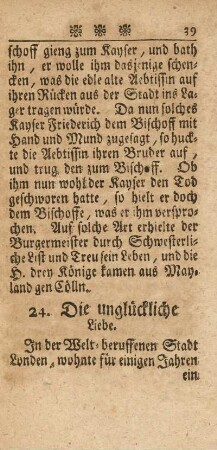 39
schoff gieng zum Kayser, und bath
ihn, er wolle ihm dasjenige schen-
cken, was die edle alte Aebtissin auf
ihren Rücken aus der Stadt ins La-
ger tragen würde. Da nun solches
Kayser Friederich dem Bischoff mit
Hand und Mund zugesagt, so huck-
te die Aebtissin ihren Bruder auf,
und trug den zum Bischoff. Ob
ihm nun wohl der Kayser den Tod
geschworen hatte, so hielt er doch
dem Bischoffe, was er ihm verspro-
chen. Auf solche Art erhielte der
Burgermeister durch Schwesterli-
che List und Treu sein Leben, und die
H. drey Könige kamen aus May-
land gen Cölln.
24. Die unglückliche
Liebe.
In der Welt-beruffenen Stadt
Londen, wohnte für einigen Jahren
ein